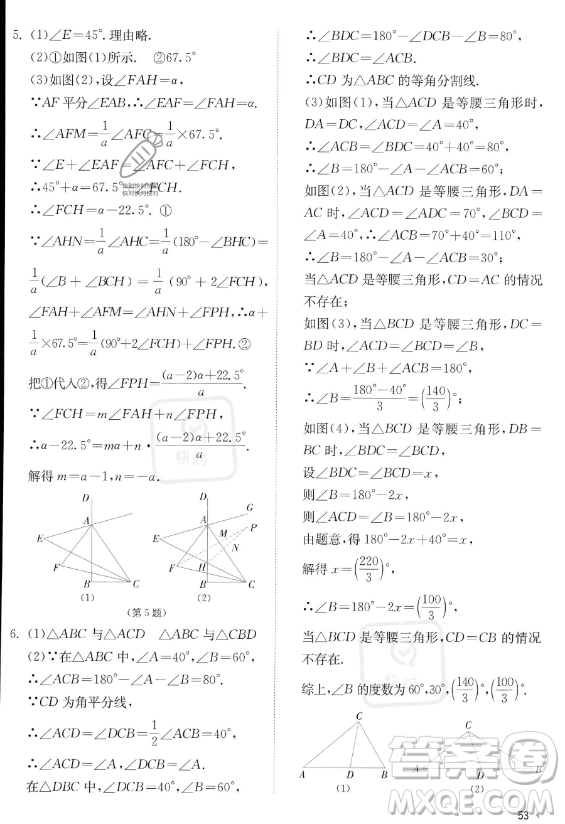 5. (1)∠E=45°. 理由略.
(2)①如图(1)所示. ②67.5°
(3)如图(2),设∠FAH=α,
∵AF平分∠EAB,∴∠EAF=∠FAH=α.
∴∠AFM=1/a∠AFC=1/a×67.5°.
∵∠E+∠EAF=∠AFC+∠FCH,
∴45°+α=67.5°+∠FCH.
∴∠FCH=α-22.5°. ①
∵∠AHN=1/a∠AHC=1/a(180°-∠BHC)=
1/a(∠B+∠BCH)=1/a(90°+2∠FCH),
∠FAH+∠AFM=∠AHN+∠FPH,∴α+
1/a×67.5°=1/a(90°+2∠FCH)+∠FPH.②
把①代入②得∠FPH=(a-2)α+22.5°/a.
∵∠FCH=m∠FAH+n∠FPH,
∴α-22.5°=mα+n·(a-2)α+22.5°/a.
解得m=a-1,n=-a.
D
A
E
F
B
C
(1)
D
G
A
M
P
E
N
F
H
B
C
(2)
(第5题)
6. (1)△ABC与△ACD △ABC与△CBD
(2)∵在△ABC中,∠A=40°,∠B=60°,
∴∠ACB=180°-∠A-∠B=80°.
∵CD为角平分线,
∴∠ACD=∠DCB=1/2∠ACB=40°.
∴∠ACD=∠A,∠DCB=∠A.
在△DBC中,∠DCB=40°,∠B=60°,
∴∠BDC=180°-∠DCB-∠B=80°.
∴∠BDC=∠ACB.
∴CD为△ABC的等角分割线.
(3)如图(1),当△ACD是等腰三角形时,
DA=DC,∠ACD=∠A=40°,
∴∠ACB=∠BDC=40°+40°=80°.
∴∠B=180°-40°-80°=60°;
如图(2),当△ACD是等腰三角形,DA=
AC时,∠ACD=∠ADC=70°,∠BCD=
∠A=40°,∴∠ACB=110°.
∴∠B=180°-40°-110°=30°;
当△ACD是等腰三角形,CD=AC的情况
不存在;
如图(3),当△BCD是等腰三角形,DC=
BD时,∠ACD=∠BCD=∠B,
∵∠A+∠B+∠ACB=180°,
∴∠B=180°-40°/3=(140/3)°;
如图(4),当△BCD是等腰三角形,DB=
BC时,∠BDC=∠BCD,
设∠BDC=∠BCD=x,
则∠B=180°-2x,
则∠ACD=∠B=180°-2x,
由题意,得180°-2x+40°=x,
解得x=(220/3)°,
∴∠B=180°-2x=(100/3)°;
当△BCD是等腰三角形,CD=CB的情况
不存在.
综上,∠B的度数为60°,30°,(140/3)°,(100/3)°.
C
A
D
B
(1)
C
A
D
B
(2)
答案圈
MXQE.COM
53